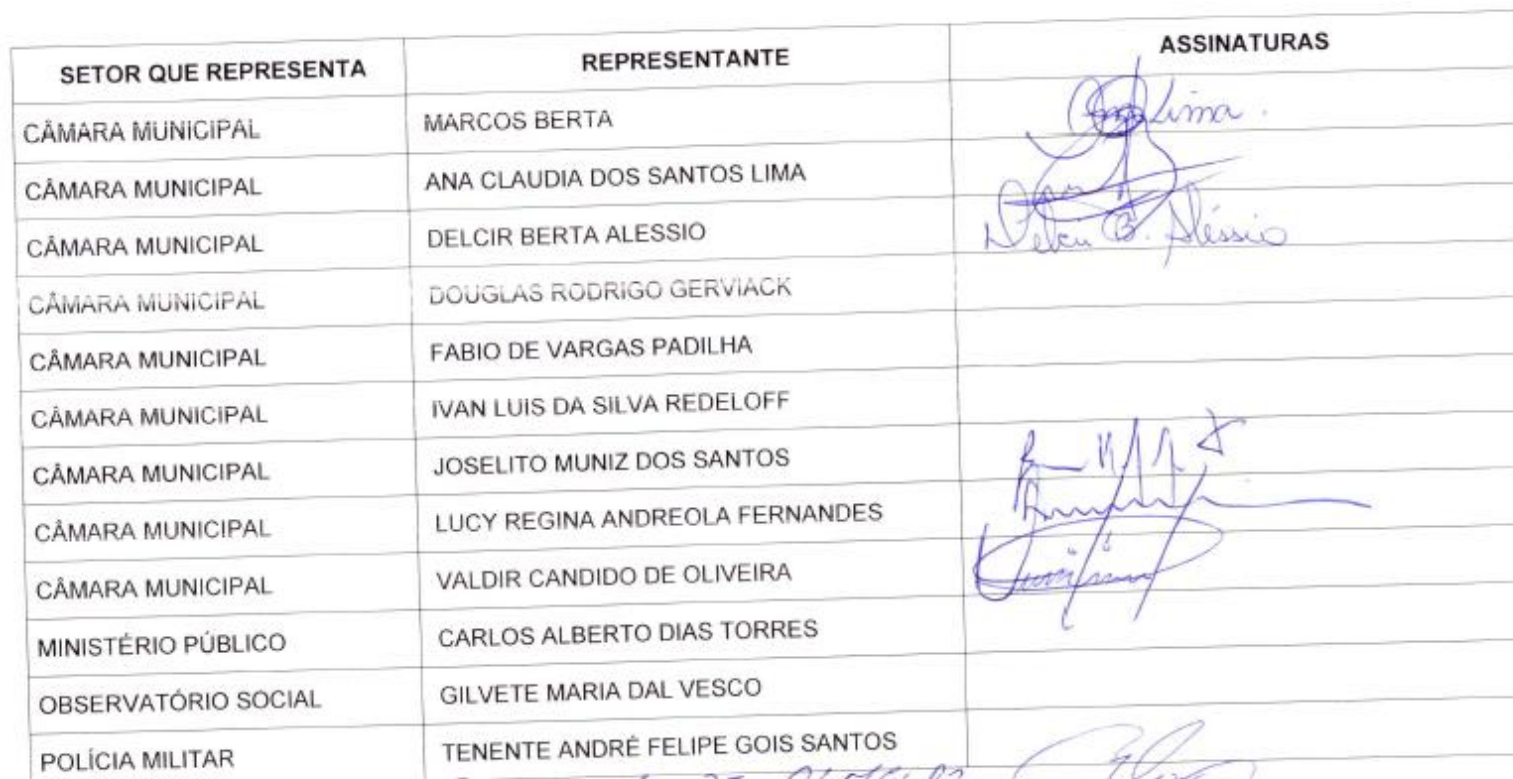 SETOR QUE REPRESENTA REPRESENTANTE ASSINATURAS
CÂMARA MUNICIPAL MARCOS BERTA Lima.
CÂMARA MUNICIPAL ANA CLAUDIA DOS SANTOS LIMA
CÂMARA MUNICIPAL DELCIR BERTA ALESSIO Delcir B. Aléssio
CÂMARA MUNICIPAL DOUGLAS RODRIGO GERVIACK
CÂMARA MUNICIPAL FABIO DE VARGAS PADILHA
CÂMARA MUNICIPAL IVAN LUIS DA SILVA REDELOFF
CÂMARA MUNICIPAL JOSELITO MUNIZ DOS SANTOS
CÂMARA MUNICIPAL LUCY REGINA ANDREOLA FERNANDES
CÂMARA MUNICIPAL VALDIR CANDIDO DE OLIVEIRA
MINISTÉRIO PÚBLICO CARLOS ALBERTO DIAS TORRES
OBSERVATÓRIO SOCIAL GILVETE MARIA DAL VESCO
POLÍCIA MILITAR TENENTE ANDRÉ FELIPE GOIS SANTOS